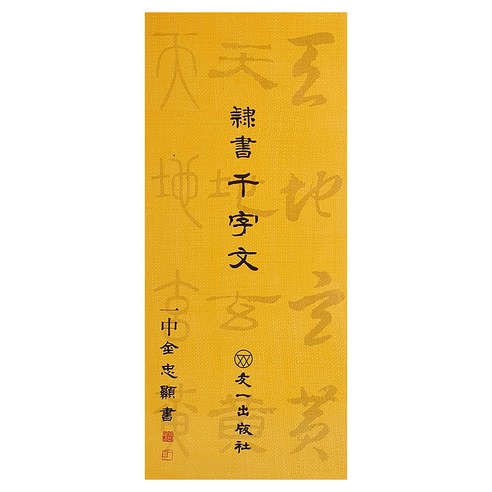 天地玄黄
天地玄黄
天地玄黃
隸書千字文
友一出版社
一中金忠顯書